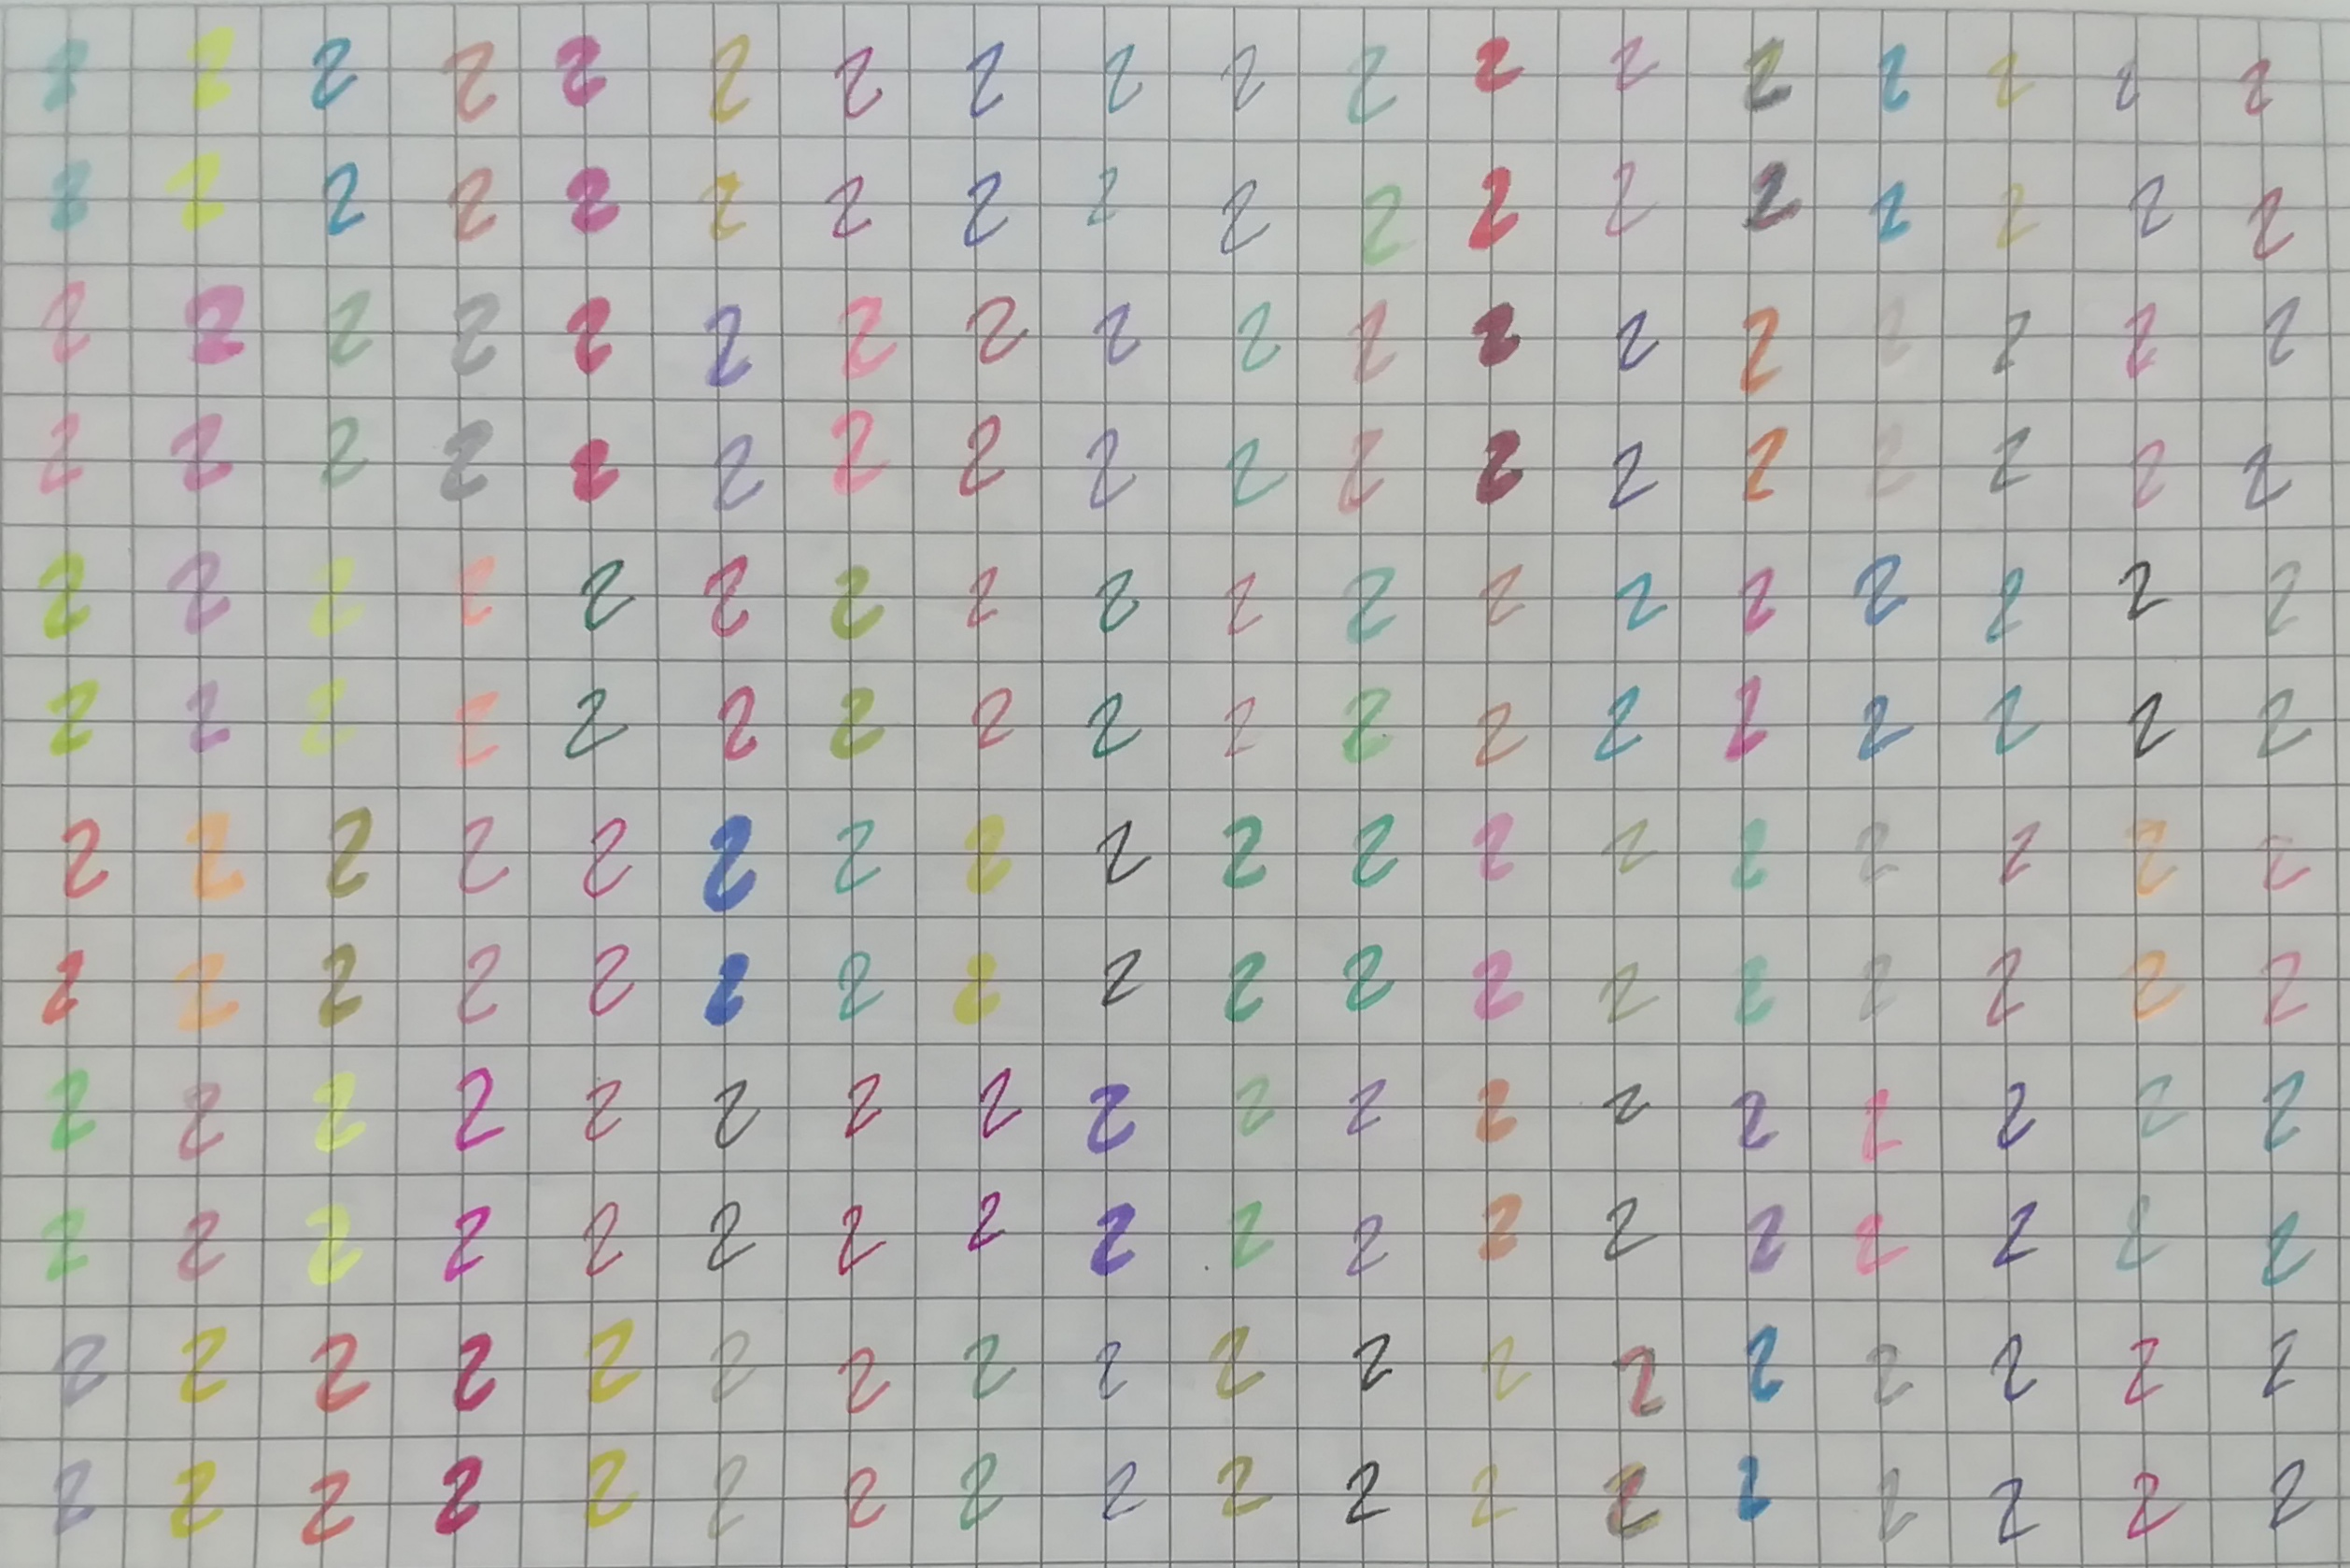 2 2 2 2 2 2 2 2 2 2 2 2 2 2 2 2 2 2
2 2 2 2 2 2 2 2 2 2 2 2 2 2 2 2 2 2
2 2 2 2 2 2 2 2 2 2 2 2 2 2 2 2 2 2
2 2 2 2 2 2 2 2 2 2 2 2 2 2 2 2 2 2
2 2 2 2 2 2 2 2 2 2 2 2 2 2 2 2 2 2
2 2 2 2 2 2 2 2 2 2 2 2 2 2 2 2 2 2
2 2 2 2 2 2 2 2 2 2 2 2 2 2 2 2 2 2
2 2 2 2 2 2 2 2 2 2 2 2 2 2 2 2 2 2
2 2 2 2 2 2 2 2 2 2 2 2 2 2 2 2 2 2
2 2 2 2 2 2 2 2 2 2 2 2 2 2 2 2 2 2
2 2 2 2 2 2 2 2 2 2 2 2 2 2 2 2 2 2
2 2 2 2 2 2 2 2 2 2 2 2 2 2 2 2 2 2